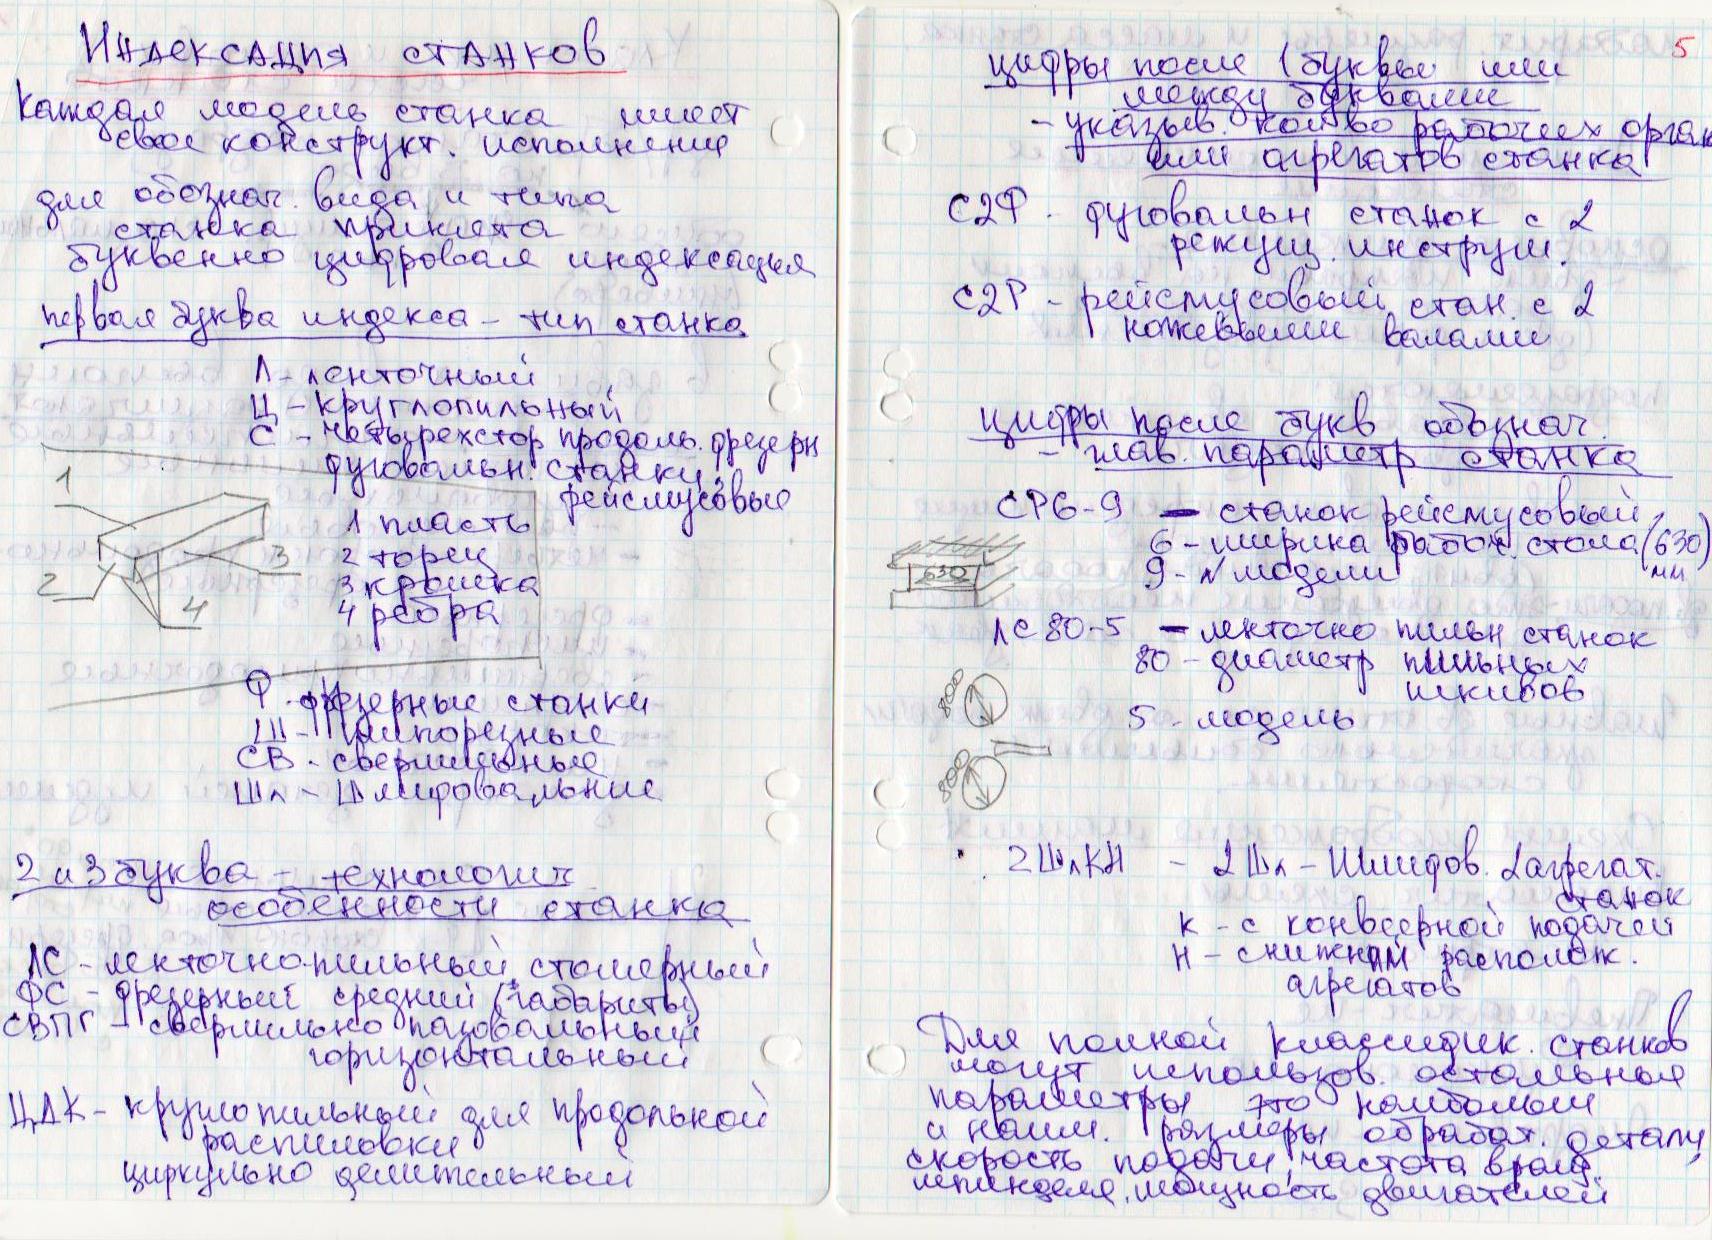 Индексация станков
Каждая модель станка имеет
свое конструкт. исполнение
для обознач. вида и типа
станка принята
буквенно цифровая индексация
первая буква индекса – тип станка
Л – ленточный
Ц – круглопильный
С – четырехстор продоль. фрезерн
фуговальн. станки,
рейсмусовые
1
2
3
4
1 пласть
2 торец
3 кромка
4 ребра
Ф - фрезерные станки
Ш – шипорезные
СВ - сверлильные
Шл – Шлифовальные
2 и 3 буква – технологич
особенности станка
ЛС – ленточно-пильный столярный
ФС – фрезерный средний (габариты)
СВПГ – сверлильно пазовальный
горизонтальный
ЦДК – круглопильный для продольной
распиловки
циркульно делительный
5
цифры после 1 буквы или
между буквами
– указыв. кол-во рабочих орган
или агрегатов станка
С2Ф - фуговальн станок с 2
режущ. инструм.
С2Р – рейсмусовый стан. с 2
ножевыми валами
цифры после букв обознач.
– глав. параметр станка
СР6-9 – станок рейсмусовый,
6 – ширина рабоч. стола (630)
мм
9 – № модели
630
ЛС80-5 – ленточно пильн станок
80 – диаметр пильных
шкивов
5 – модель
800
800
2ШлКН – 2Шл – Шлифов. 2агрегат.
станок
К – с конвеерной подачей
Н – с нижним располож.
агрегатов
Для полной классифик. станков
могут использов. остальные
параметры это наибольш
и наим. размеры обработ. детали,
скорость подачи, частота вращ.
шпинделя, мощность двигателей